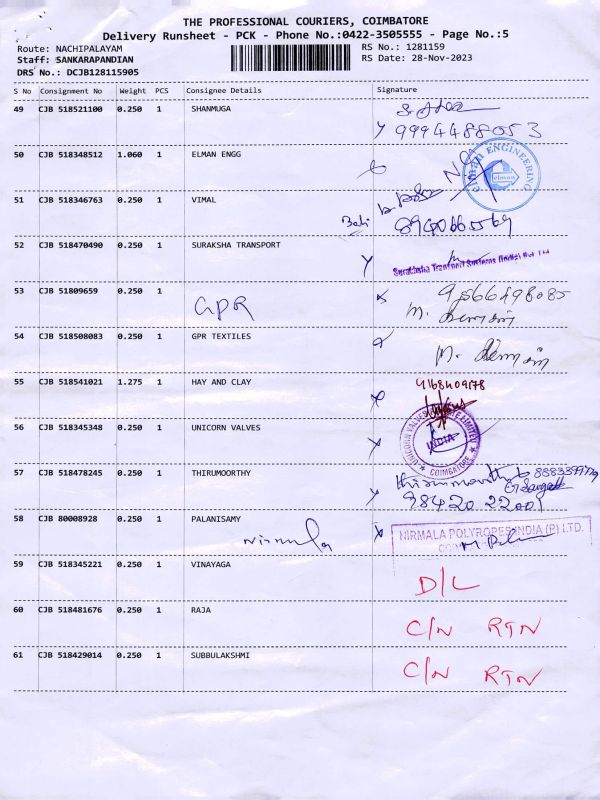 THE PROFESSIONAL COURIERS, COIMBATORE
Delivery Runsheet - PCK - Phone No.:0422-3505555 - Page No.:5
Route: NACHIPALAYAM RS No.: 1281159
Staff: SANKARAPANDIAN RS Date: 28-Nov-2023
DRS No.: DCJB128115905
S No Consignment No Weight PCS Consignee Details Signature
49 CJB 518521100 0.250 1 SHANMUGA
9994488053
50 CJB 518348512 1.060 1 ELMAN ENGG
elman ENGINEERING
elman
51 CJB 518346763 0.250 1 VIMAL
52 CJB 518470490 0.250 1 SURAKSHA TRANSPORT
Suraksha Transport Systems (India) Pvt Ltd
53 CJB 51809659 0.250 1
GPR
54 CJB 518508083 0.250 1 GPR TEXTILES
55 CJB 518541021 1.275 1 HAY AND CLAY
56 CJB 518345348 0.250 1 UNICORN VALVES
UNICORN VALVES PRIVATE LIMITED
INDIA
COIMBATORE
57 CJB 518478245 0.250 1 THIRUMOORTHY
98420 22001
58 CJB 80008928 0.250 1 PALANISAMY
Nirmala
NIRMALA POLYROPES INDIA (P) LTD.
59 CJB 518345221 0.250 1 VINAYAGA
D/L
60 CJB 518481676 0.250 1 RAJA
C/N RTN
61 CJB 518429014 0.250 1 SUBBULAKSHMI
C/N RTN